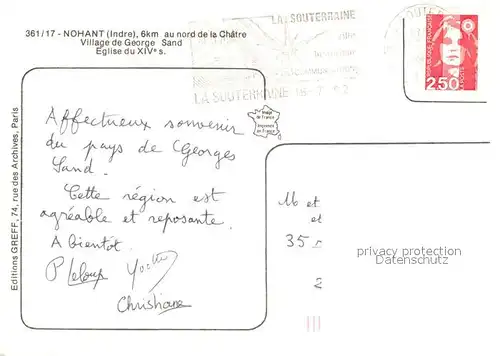 361/17 - NOHANT (Indre), 6km au nord de la Châtre
Village de George Sand
Eglise du XIVe s.
LA SOUTERRAINE
ville
LA SOUTERRAINE
REPUBLIQUE FRANCAISE
LA POSTE
2,50
Image de France
Imprimée en France
Affectueux souvenir
du pays de Georges
Sand.
Cette région est
agréable et reposante.
A bientôt.
P Leloup Yvette
Christiane
M et
et
35
2
privacy protection
Datenschutz
Editions GREFF, 74, rue des Archives, Paris